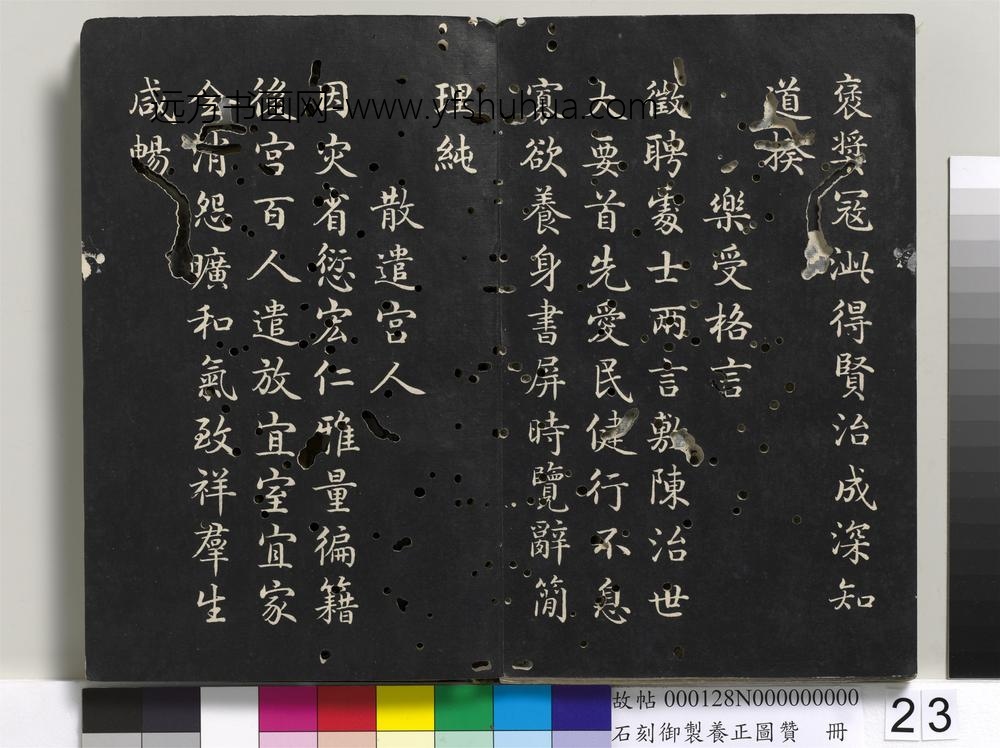 褒奨冠泚得賢治成深知
道揆
樂受格言
徵聘處士兩言敷陳治世
大要首先愛民健行不息
寡欲養身書屏時覽辭簡
理純
散遣宮人
因灾省愆宏仁雅量徧籍
後宮百人遣放宜室宜家
全消怨曠和氣致祥羣生
咸暢
远方书画网-www.yfshuhua.com
故帖 000128N000000000
石刻御製養正圖贊 冊
23